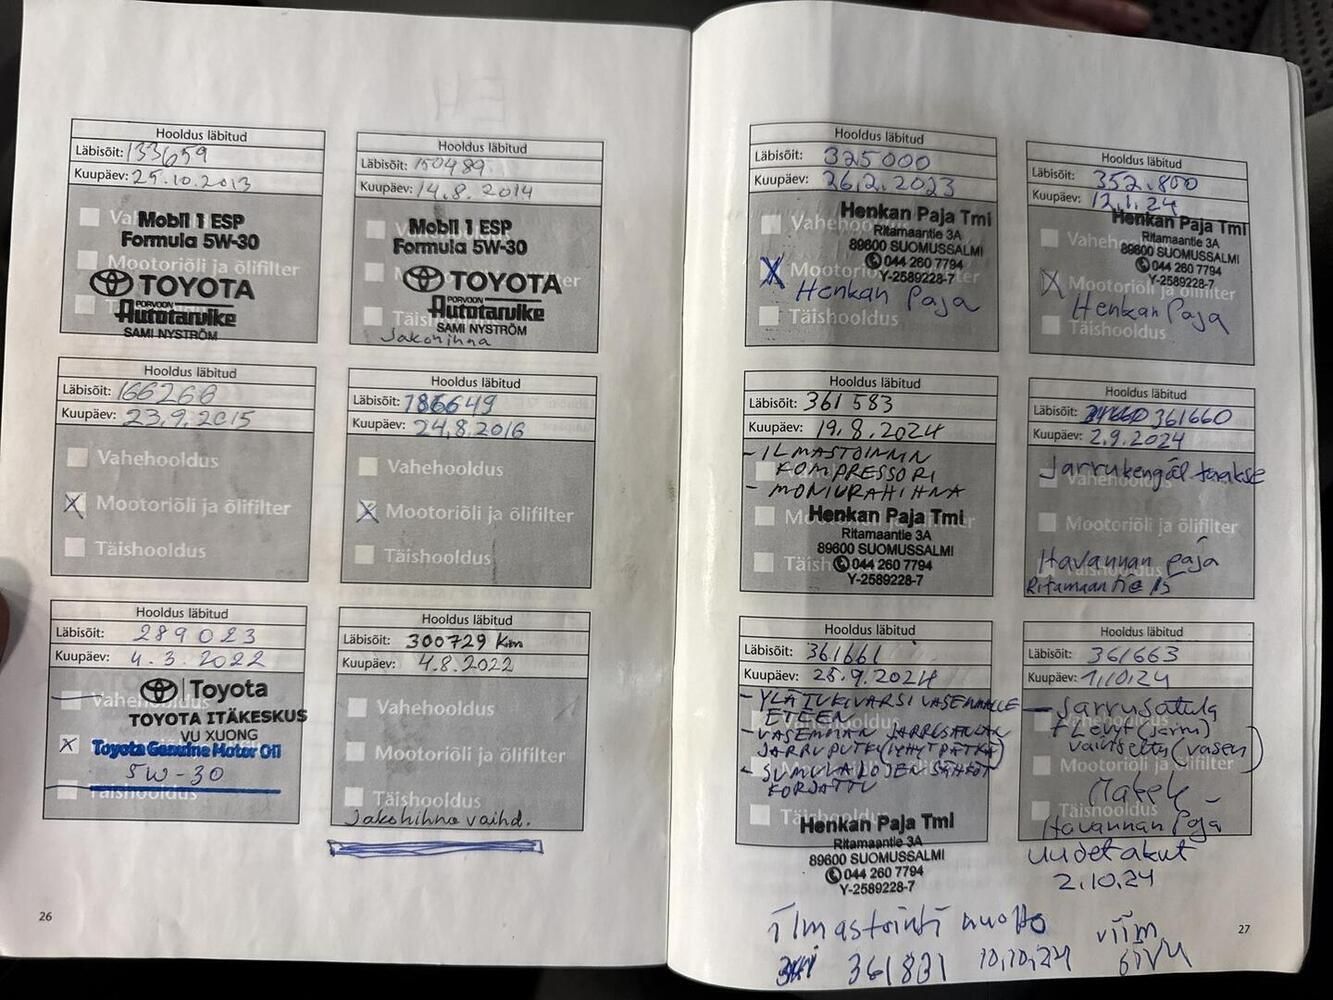 Hooldus läbitud
Läbisõit: 133659
Kuupäev: 25.10.2013
Mobil 1 ESP
Formula 5W-30
Mootoriõli ja õlifilter
TOYOTA
PORVOON
Autotarvike
SAMI NYSTRÖM
Hooldus läbitud
Läbisõit: 150489
Kuupäev: 14.8. 2014
Mobil 1 ESP
Formula 5W-30
TOYOTA
PORVOON
Autotarvike
SAMI NYSTRÖM
Jakohihna
Hooldus läbitud
Läbisõit: 166266
Kuupäev: 23.9.2015
Vahehooldus
Mootoriõli ja õlifilter
Täishooldus
Hooldus läbitud
Läbisõit: 186649
Kuupäev: 24.8.2016
Vahehooldus
Mootoriõli ja õlifilter
Täishooldus
Hooldus läbitud
Läbisõit: 289023
Kuupäev: 4.3.2022
Vahehooldus
Toyota
TOYOTA ITÄKESKUS
VU XUONG
Toyota Genuine Motor Oil
5W-30
Täishooldus
Hooldus läbitud
Läbisõit: 300729 km
Kuupäev: 4.8.2022
Vahehooldus
Mootoriõli ja õlifilter
Täishooldus
Jakohihna vaihd.
26
Hooldus läbitud
Läbisõit: 325000
Kuupäev: 26.2.2023
Henkan Paja Tmi
Ritamaantie 3A
89600 SUOMUSSALMI
044 260 7794
Y-2589228-7
Henkan Paja
Täishooldus
Hooldus läbitud
Läbisõit: 352.800
Kuupäev: 12.1.24
Henkan Paja Tmi
Ritamaantie 3A
89600 SUOMUSSALMI
044 260 7794
Y-2589228-7
Mootoriõli ja õlifilter
Henkan Paja
Täishooldus
Hooldus läbitud
Läbisõit: 361 583
Kuupäev: 19.8.2024
- ILMASTOINNIN
KOMPRESSORI
- MONIURAHIHNA
Henkan Paja Tmi
Ritamaantie 3A
89600 SUOMUSSALMI
044 260 7794
Y-2589228-7
Hooldus läbitud
Läbisõit: 361660
Kuupäev: 2.9.2024
Jarrukengät taakse
Vahehooldus
Mootoriõli ja õlifilter
Havannan paja
Ritamaantie 15
Hooldus läbitud
Läbisõit: 361661
Kuupäev: 25.9.2024
- YLÄTUKIVARSI VASEMMALLE
ETEEN
- VASEMMAN JARRUSATULAN
JARRUPUTKI (LYHYT PÄTKÄ)
- SUMUVALOJEN SÄHKÖT
KORJATTU
Henkan Paja Tmi
Ritamaantie 3A
89600 SUOMUSSALMI
044 260 7794
Y-2589228-7
Hooldus läbitud
Läbisõit: 361663
Kuupäev: 1.10.24
- Jarrusatula
+ Levyt (jarru)
vaihdettu (vasen)
Mootoriõli ja õlifilter
Täishooldus
Havannan Paja
uudet akut
2.10.24
ilmastointi huolto
361831 10.10.24
27